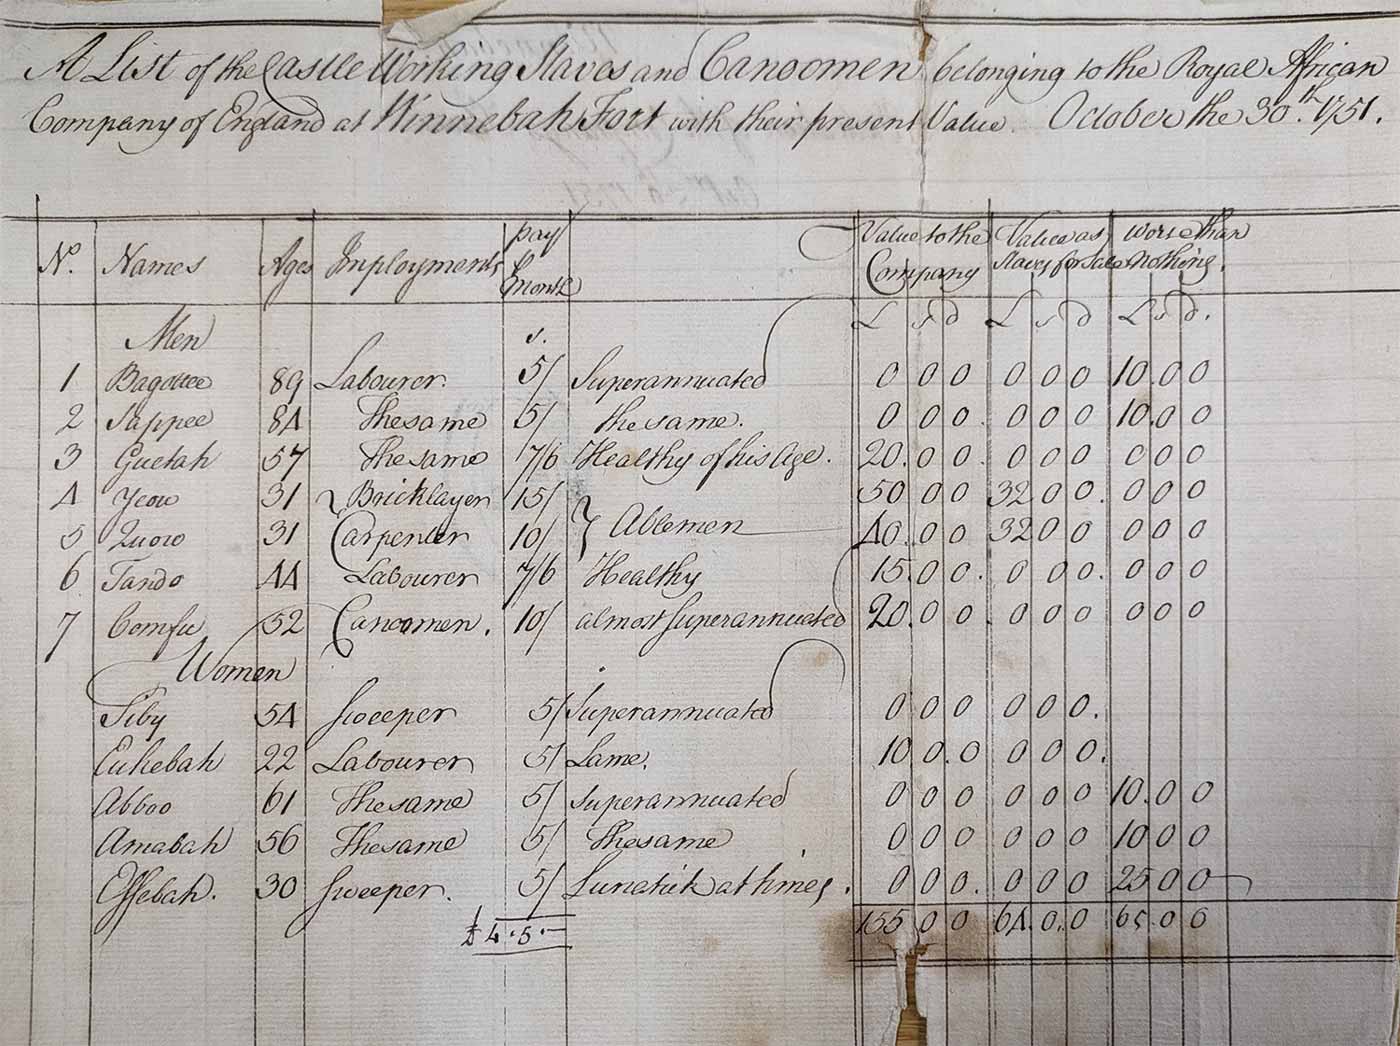 A List of the Castle Working Slaves and Canoomen belonging to the Royal African
Company of England at Winnebah Fort with their present Value. October the 30th. 1751.
No. Names Ages Imployments pay p month Value to the Company Value as Slaves for Sale worse than nothing.
Men s. L s d L s d L s d.
1 Bagottee 89 Labourer. 5/ Superannuated 0 0 0 0 0 0 10. 0 0
2 Sappee 84 The same 5/ the same. 0 0 0 0 0 0 10. 0 0
3 Guetah 57 The same 7/6 Healthy of his Age. 20. 0 0 0 0 0 0 0 0
4 Yeow 31 Bricklayer 15/ } Ablemen 50 0 0 32 0 0. 0 0 0
5 Quow 31 Carpenter 10/ 40. 0 0 32 0 0 0 0 0
6 Tando 44 Labourer 7/6 Healthy 15. 0 0. 0 0 0. 0 0 0
7 Comfu 52 Canoomen. 10/ almost Superannuated 20. 0 0 0 0 0 0 0 0
Women
Siby 54 Sweeper 5/ Superannuated 0 0 0 0 0 0.
Eukebah 22 Labourer 5/ Lame. 10 0. 0 0 0 0.
Abboo 61 The same 5/ Superannuated 0 0 0 0 0 0 10. 0 0
Amabah 56 The same 5/ the same 0 0 0 0 0 0 10. 0 0
Effebah. 30 Sweeper. 5/ Lunatick at times. 0 0 0. 0 0 0 25 0 0
£4.5.- 155 0 0 64. 0. 0 65. 0 0